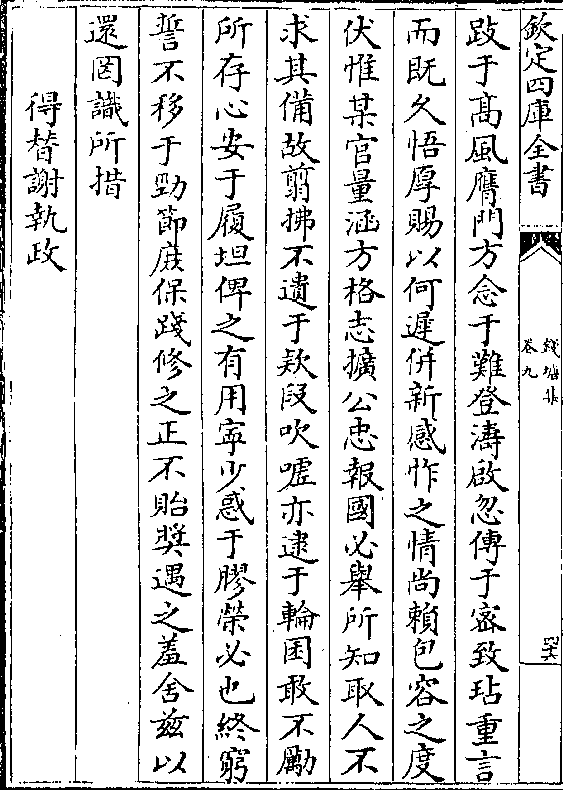 欽定四庫全書
錢塘集
卷九
跂于髙風膺門方念于難登濤啟忽傳于密致玷重言
而既久悟厚賜以何遲併新感怍之情尚賴包容之度
伏惟某官量涵方格志擴公忠報國必舉所知取人不
求其備故翦拂不遺于欵段吹噓亦逮于輪囷敢不勵
所存心安于履坦俾之有用寧少惑于膠榮必也終窮
誓不移于勁節庶保踐修之正不貽奬遇之羞舍兹以
還罔識所措
得替謝執政